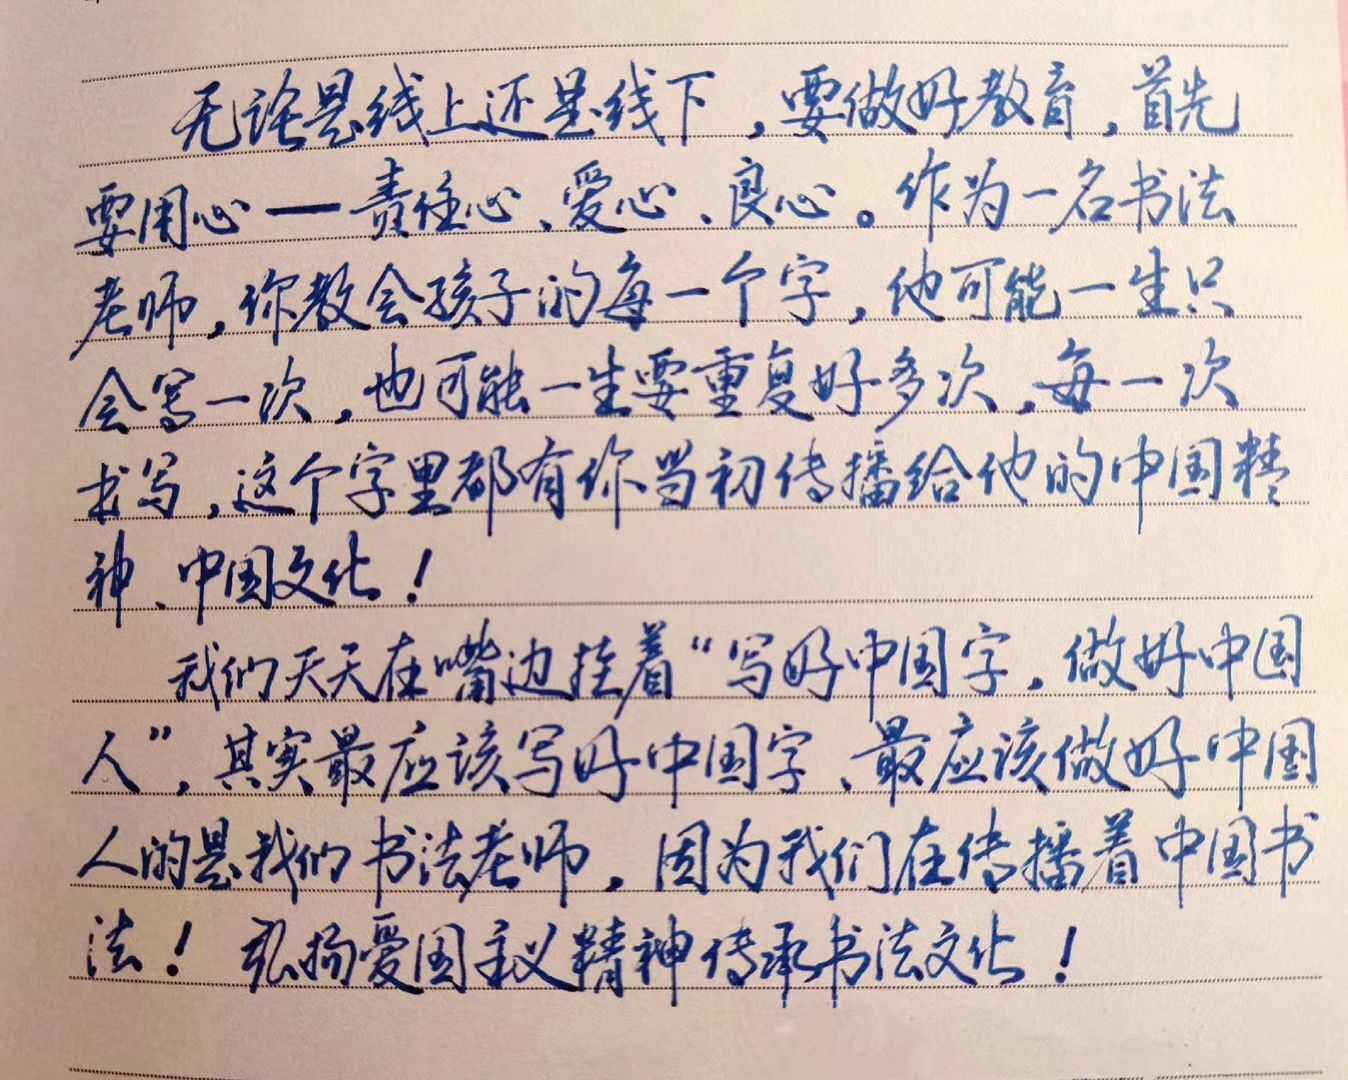 无论是线上还是线下，要做好教育，首先
要用心一责任心、爱心、良心。作为一名书法
老师，你教会孩子的每一个字，他可能一生只
会写一次，也可能一生要重复好多次，每一次
书写，这个字里都有你当初传播给他的中国精
神、中国文化！
我们天天在嘴边挂着“写好中国字，做好中国
人”，其实最应该写好中国字、最应该做好中国
人的是我们书法老师，因为我们在传播着中国书
法！弘扬爱国主义精神传承书法文化！